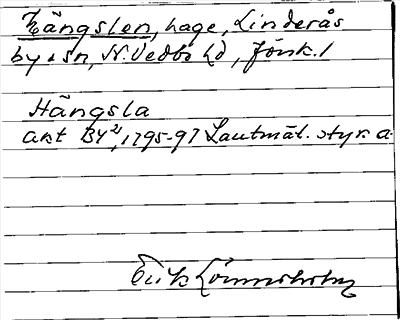 Hängslen, hage, Linderås
by o sn, N. Vedbo hd, Jönk. l
Hängsla
akt BY², 1795-97 Lantmät. styr. a.
Erik